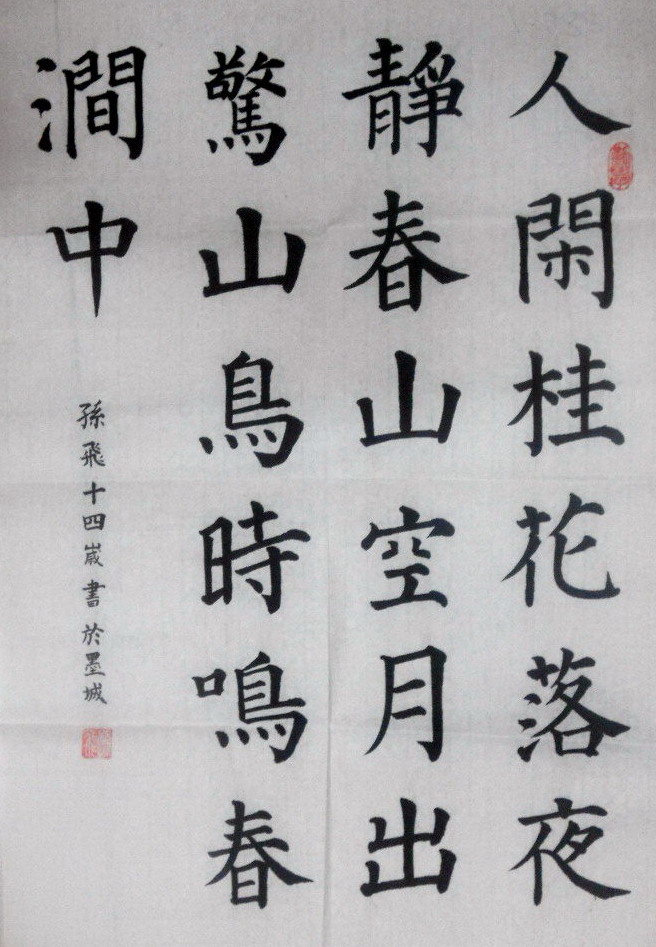 人閑桂花落夜
靜春山空月出
驚山鳥時鳴春
澗中
孫飛十四歲書於墨城